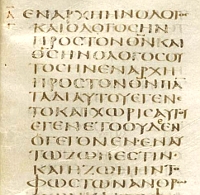 ΕΝΑΡΧΗΗΝΟΛΟΓΟϹ
ΚΑΙΟΛΟΓΟϹΗΝ
ΠΡΟϹΤΟΝΘΝΚΑΙ
ΘϹΗΝΟΛΟΓΟϹΟΥ
ΤΟϹΗΝΕΝΑΡΧΗ
ΠΡΟϹΤΟΝΘΝΠΑ
ΤΑΔΙΑΥΤΟΥΕΓΕΝΕ
ΤΟΚΑΙΧΩΡΙϹΑΥΤ
ΕΓΕΝΕΤΟΟΥΔΕΝ
ΟΓΕΓΟΝΕΝΕΝΑΥ
ΤΩΖΩΗΕϹΤΙΝ
ΚΑΙΗΖΩΗΗΝΤΟ
ΦΩϹΤΩΝΑΝΘΡ